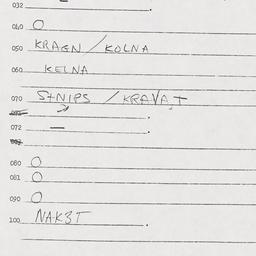 032 .
040 O
050 KRAGN / KOLNA
060 KELNA
070 STNIPS / KRAVAT
072 — .
080 O
081 O
090 O
100 NAK3T .